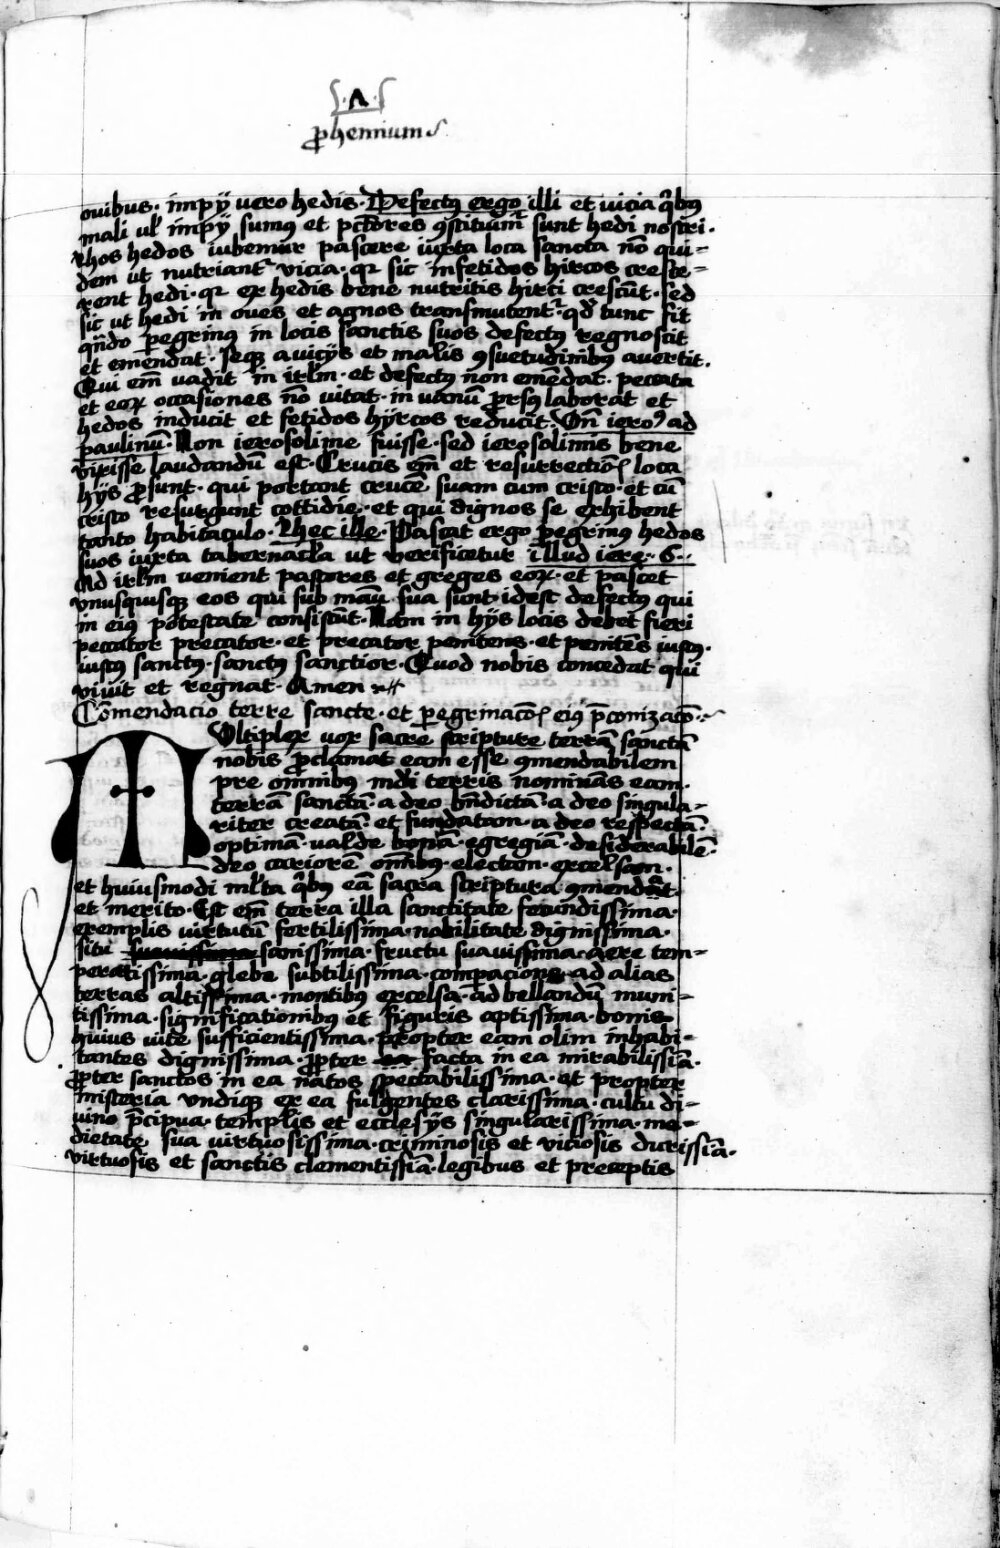 .A.
ꝓhemium
ouibus. impij vero hedis. Defectꝰ ergo illi et vicia qͥbus
mali vl impij sumꝰ et pctores ꝯstituim̃ sunt hedi nostri.
Hos hedos iubemur pascere iuxta loca sancta nō qui-
dem ut nutriantᷣ vicia. qꝛ sic in fetidos hircos cresce-
rent hedi. qꝛ ex hedis bene nutritis hirci crescūt. sed
sic ut hedi in oues et agnos transmutentᷣ. qd tunc fit
qn̄do ꝑegrinꝰ in locis sanctis suos defectꝰ regnoscit
et emendat. seqꝫ a vicijs et malis ꝯsuetudinibus auertit.
Qui em̄ vadit in irlm. et defectꝰ non emēdat. peccata
et eoꝝ occasiones nō vitat. in vanū ꝓrsꝰ laborat et
hedos inducit et fetidos hyrcos reducit. Vn̄ ieroꝰ ad
paulinū. Non ierosolime fuisse. sed ierosolimis bene
vixisse laudandū est. Crucis em̄ et resurrectiōis loca
hijs ꝓsunt. qui portant crucē suam cum cristo. et cū
cristo resurgunt cottidie. et qui dignos se exhibent
tanto habitaculo. Hec ille. Pascat ergo ꝑegrinꝰ hedos
suos iuxta tabernacla ut verificetur illud iere. 6.
Ad irlm venient pastores et greges eoꝝ. et pascet
vnusquisqꝫ eos qui sub manu sua sunt. idest defectꝰ qui
in eiꝰ potestate consistūt. Nam in hijs locis debet fieri
peccator precator. et precator penitens. et penitēs iustꝰ.
iustꝰ sanctꝰ. sanctꝰ sanctior. Quod nobis concedat qui
viuit et regnat. Amen
Cōmendacio terre sancte. et ꝑegrinacōis eiꝰ p̄conizacō.
Multiplex vox sacre scripture terrā sanctā
nobis ꝓclamat eam esse ꝯmendabilem
pre omnibus mūdi terris nominās eam.
terrā sanctā. a deo bn̄dictā. a deo singula-
riter creatā. et fundatam. a deo respectā.
optimā. valde bonā. egregiā. desiderabilē.
deo cariorē omībus. electam. excelsam.
et huiusmodi mlta qͥbus eā sacra scriptura ꝯmendat
et merito. Est em̄ terra illa sanctitate fecundissima.
exemplis virtutū fertilissima. nobilitate dignissima.
situ suauissima sanissima. fructu suauissima. aere tem-
peratissima. gleba subtilissima. compacione ad alias
terras altissima. montibus excelsa. ad bellandū muni-
tissima. significationibus et figuris aptissima. bonis
huius vite sufficientissima. propter eam olim inhabi-
tantes dignissima. ꝓpter ea facta in ea mirabilissīa.
ꝓpter sanctos in ea natos spectabilissima. et propter
misteria vndiqꝫ ex ea fulgentes clarissima. cultu di-
uino p̄cipua. templis et ecclesijs singularissima. me-
dietate sua virtuosissima. criminosis et viciosis durissīa.
virtuosis et sanctis clementissīa. legibus et preceptis